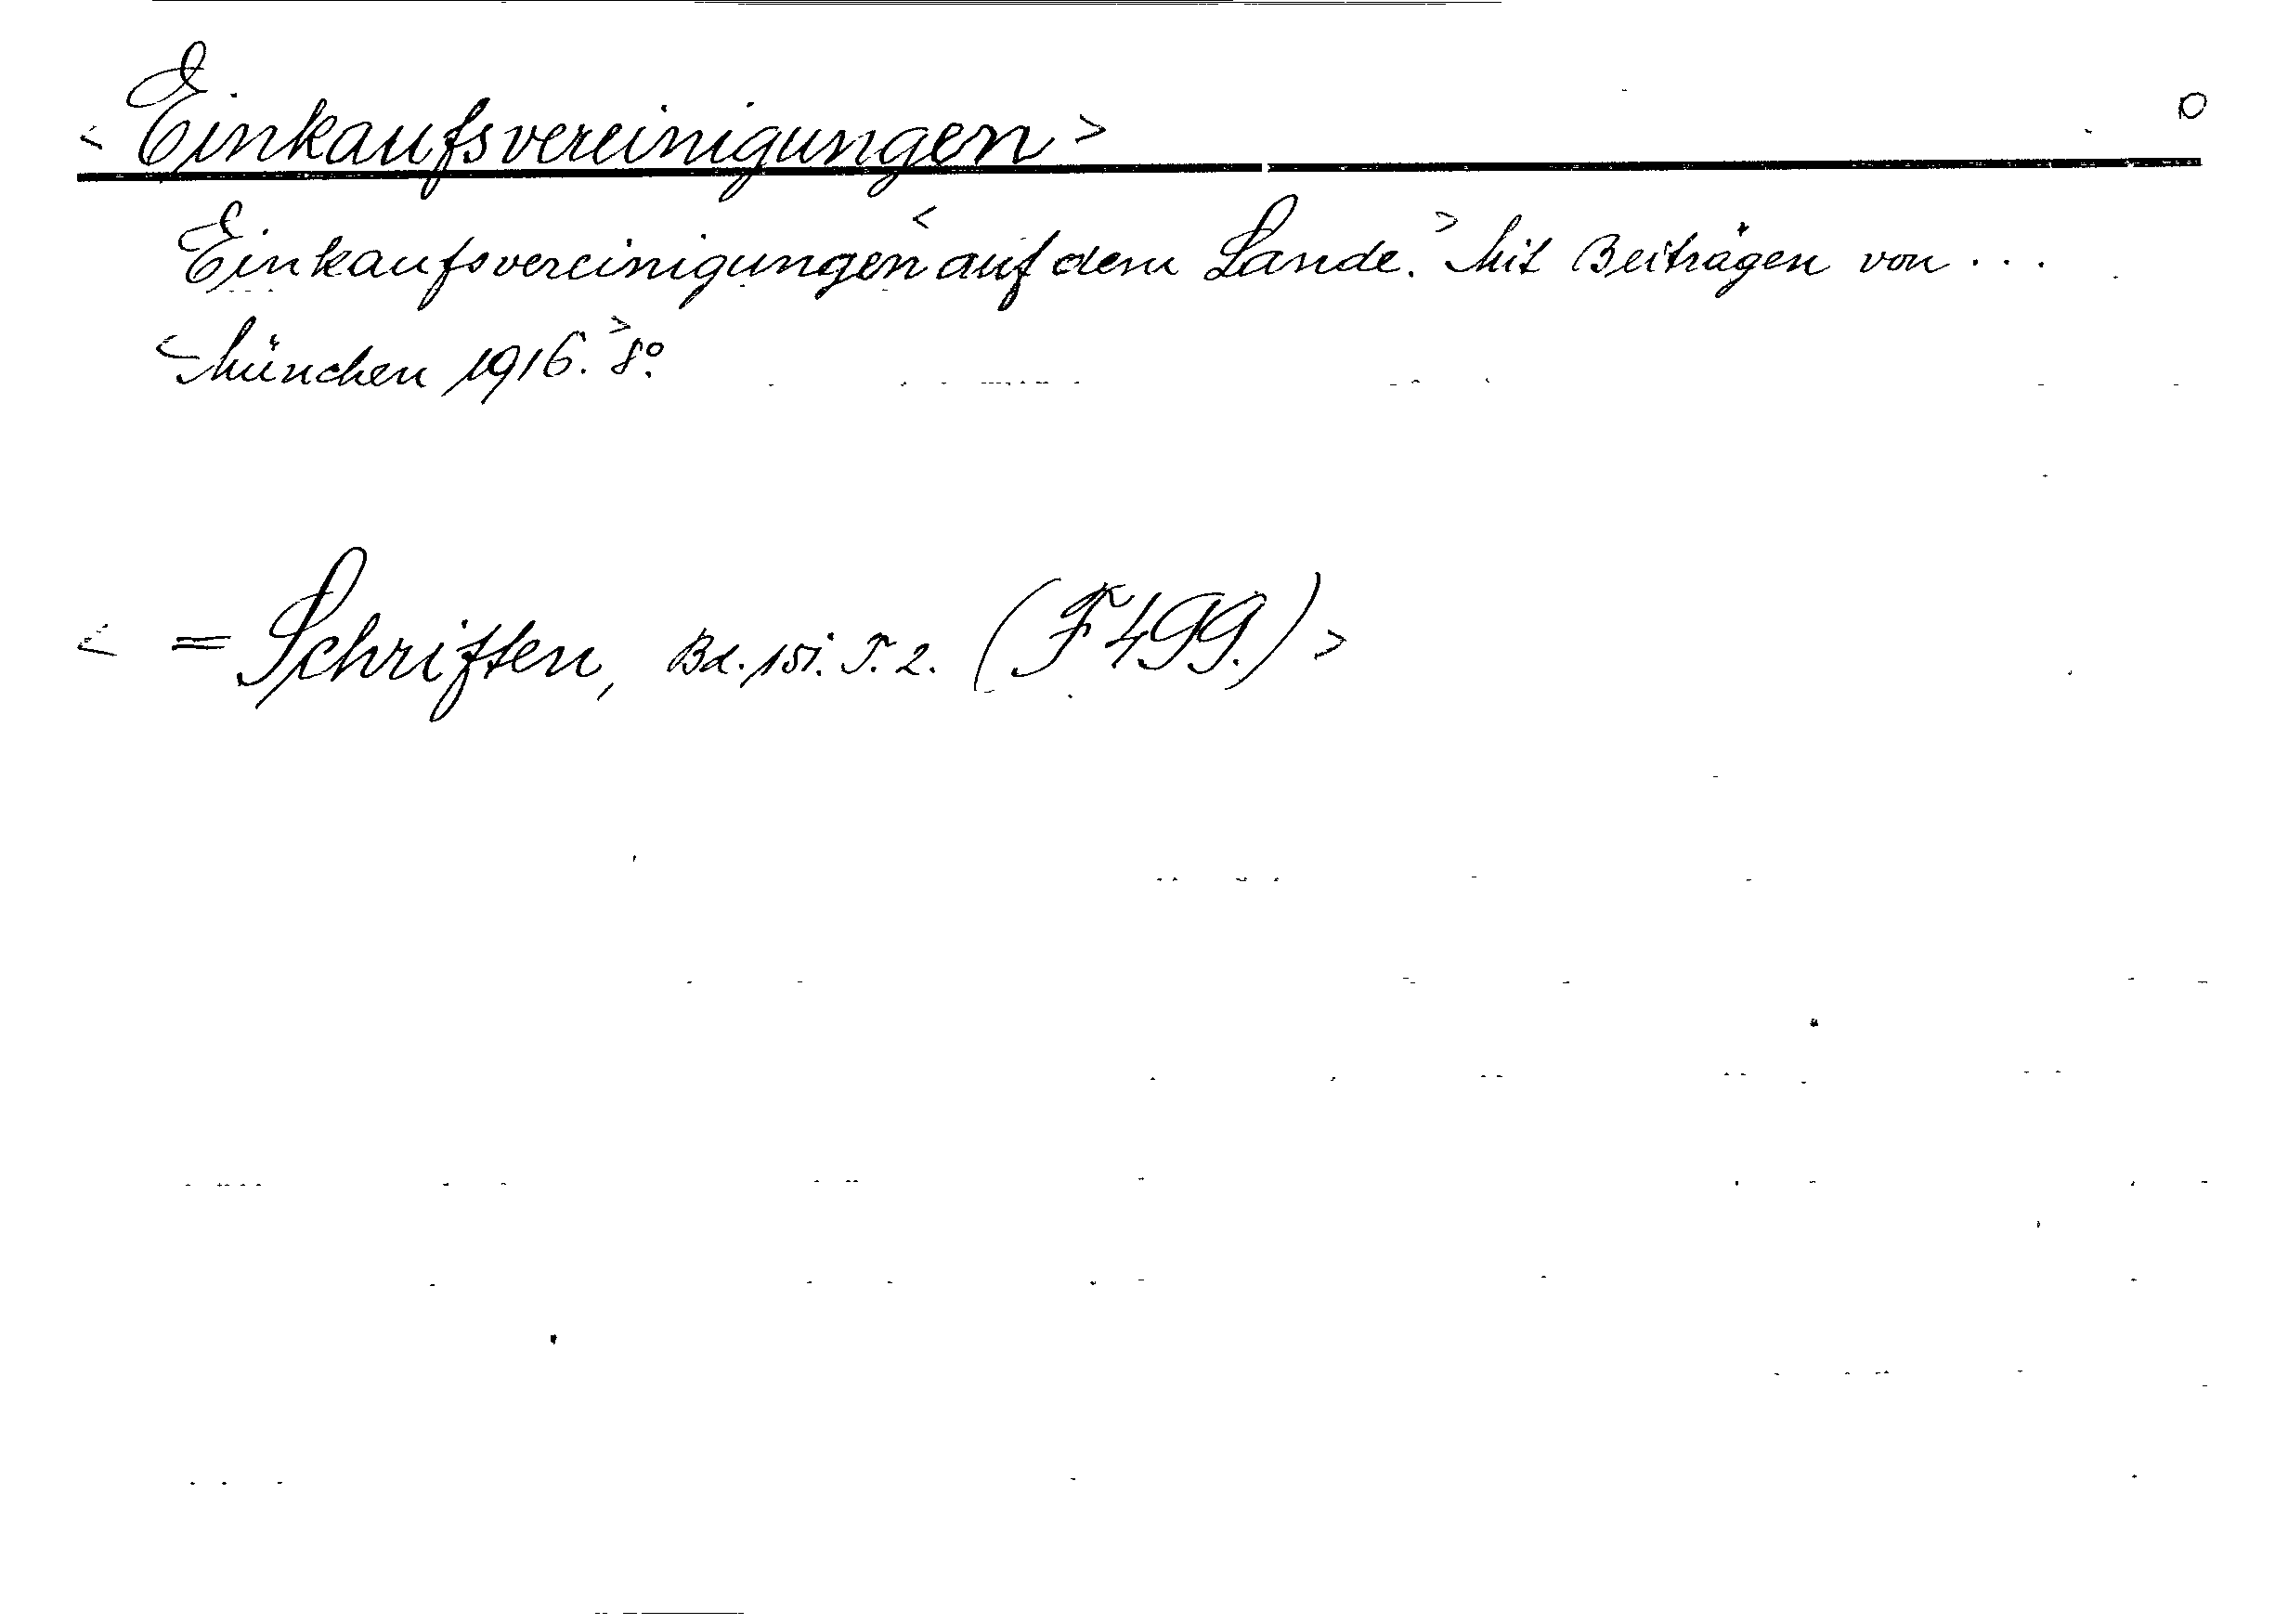 <Einkaufsvereinigungen> O
Einkaufsvereinigungen <auf dem Lande.> Mit Beiträgen von ...
<München 1916.> 8°.
< = Schriften, Bd. 151. T. 2. (F 499.) >